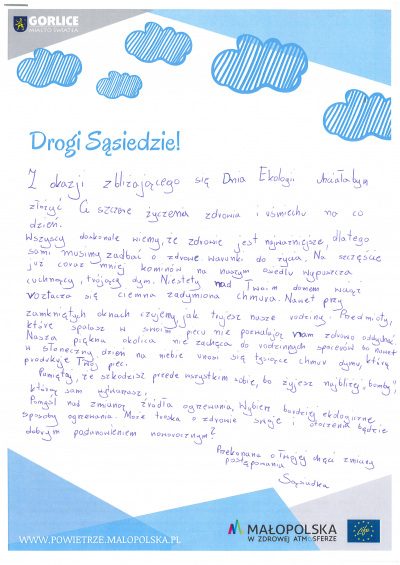 GORLICE
MIASTO ŚWIATŁA
Drogi Sąsiedzie!
Z okazji zbliżającego się Dnia Ekologii chciałabym
złożyć Ci szczere życzenia zdrowia i uśmiechu na co
dzień.
Wszyscy doskonale wiemy, że zdrowie jest najważniejsze, dlatego
sami musimy zadbać o zdrowe warunki do życia. Na szczęście
już coraz mniej kominów na naszym osiedlu wypuszcza
cuchnący, trujący dym. Niestety nad Twoim domem wciąż
roztacza się ciemna zadymiona chmura. Nawet przy
zamkniętych oknach czujemy jak trujesz nasze rodziny. Przedmioty,
które spalasz w swoim piecu nie pozwalają nam zdrowo oddychać.
Nasza piękna okolica nie zachęca do rodzinnych spacerów bo nawet
w słoneczny dzień na niebie unosi się tysiące chmur dymu, które
produkuje Twój piec.
Pamiętaj, że szkodzisz przede wszystkim sobie, bo żyjesz najbliżej "bomby",
którą sam wytwarzasz.
Pomyśl nad zmianą źródła ogrzewania. Wybierz bardziej ekologiczne
sposoby ogrzewania. Może troska o zdrowie swoje i otoczenia będzie
dobrym postanowieniem noworocznym?
Przekonana o Twojej chęci zmiany
postępowania
Sąsiadka
WWW.POWIETRZE.MALOPOLSKA.PL
MAŁOPOLSKA
W ZDROWEJ ATMOSFERZE